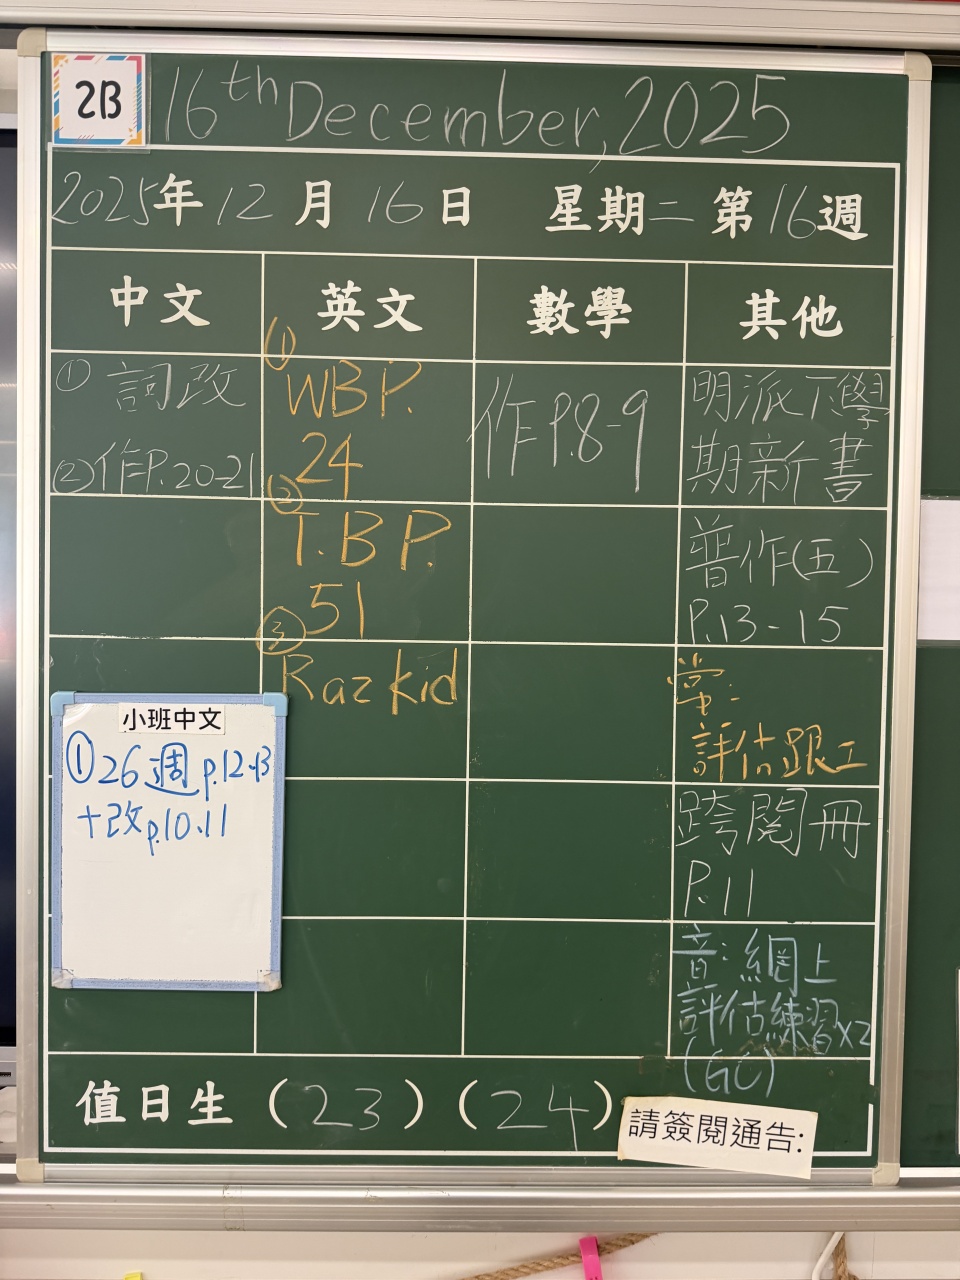 2B
16th December, 2025
2025年12月16日 星期二 第16週
中文 英文 數學 其他
① 詞改
② 作P.20-21
①
WBP.
24
②
T.B P.
51
③
Raz kid
作P.8-9
明派下學
期新書
普作(五)
P.13-15
常:
評估跟工
跨閱冊
P.11
音:網上
評估練習x2
(GC)
小班中文
① 26週 p.12.13
+改p.10.11
值日生 (23) (24)
請簽閱通告: